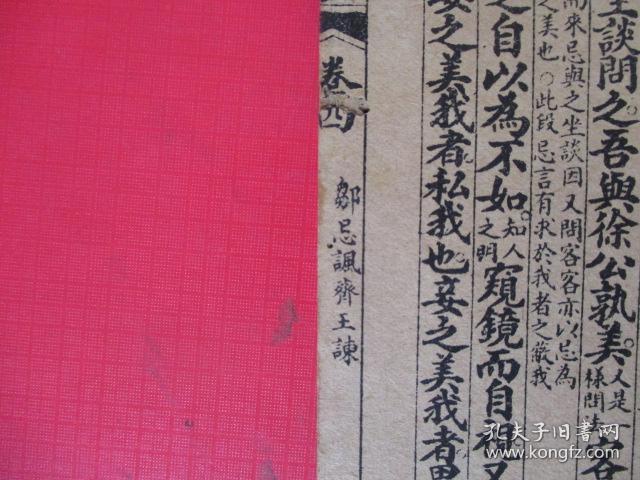 坐談問之吾與徐公孰美又是一樣問法客
而來忌與之坐談因又問客客亦以忌為
之美也○此段忌言有求於我者之蔽我
之自以為不如知人之明窺鏡而自視又
妾之美我者私我也妾之美我者畏
卷四
鄒忌諷齊王諫
孔夫子旧书网
www.kongfz.com